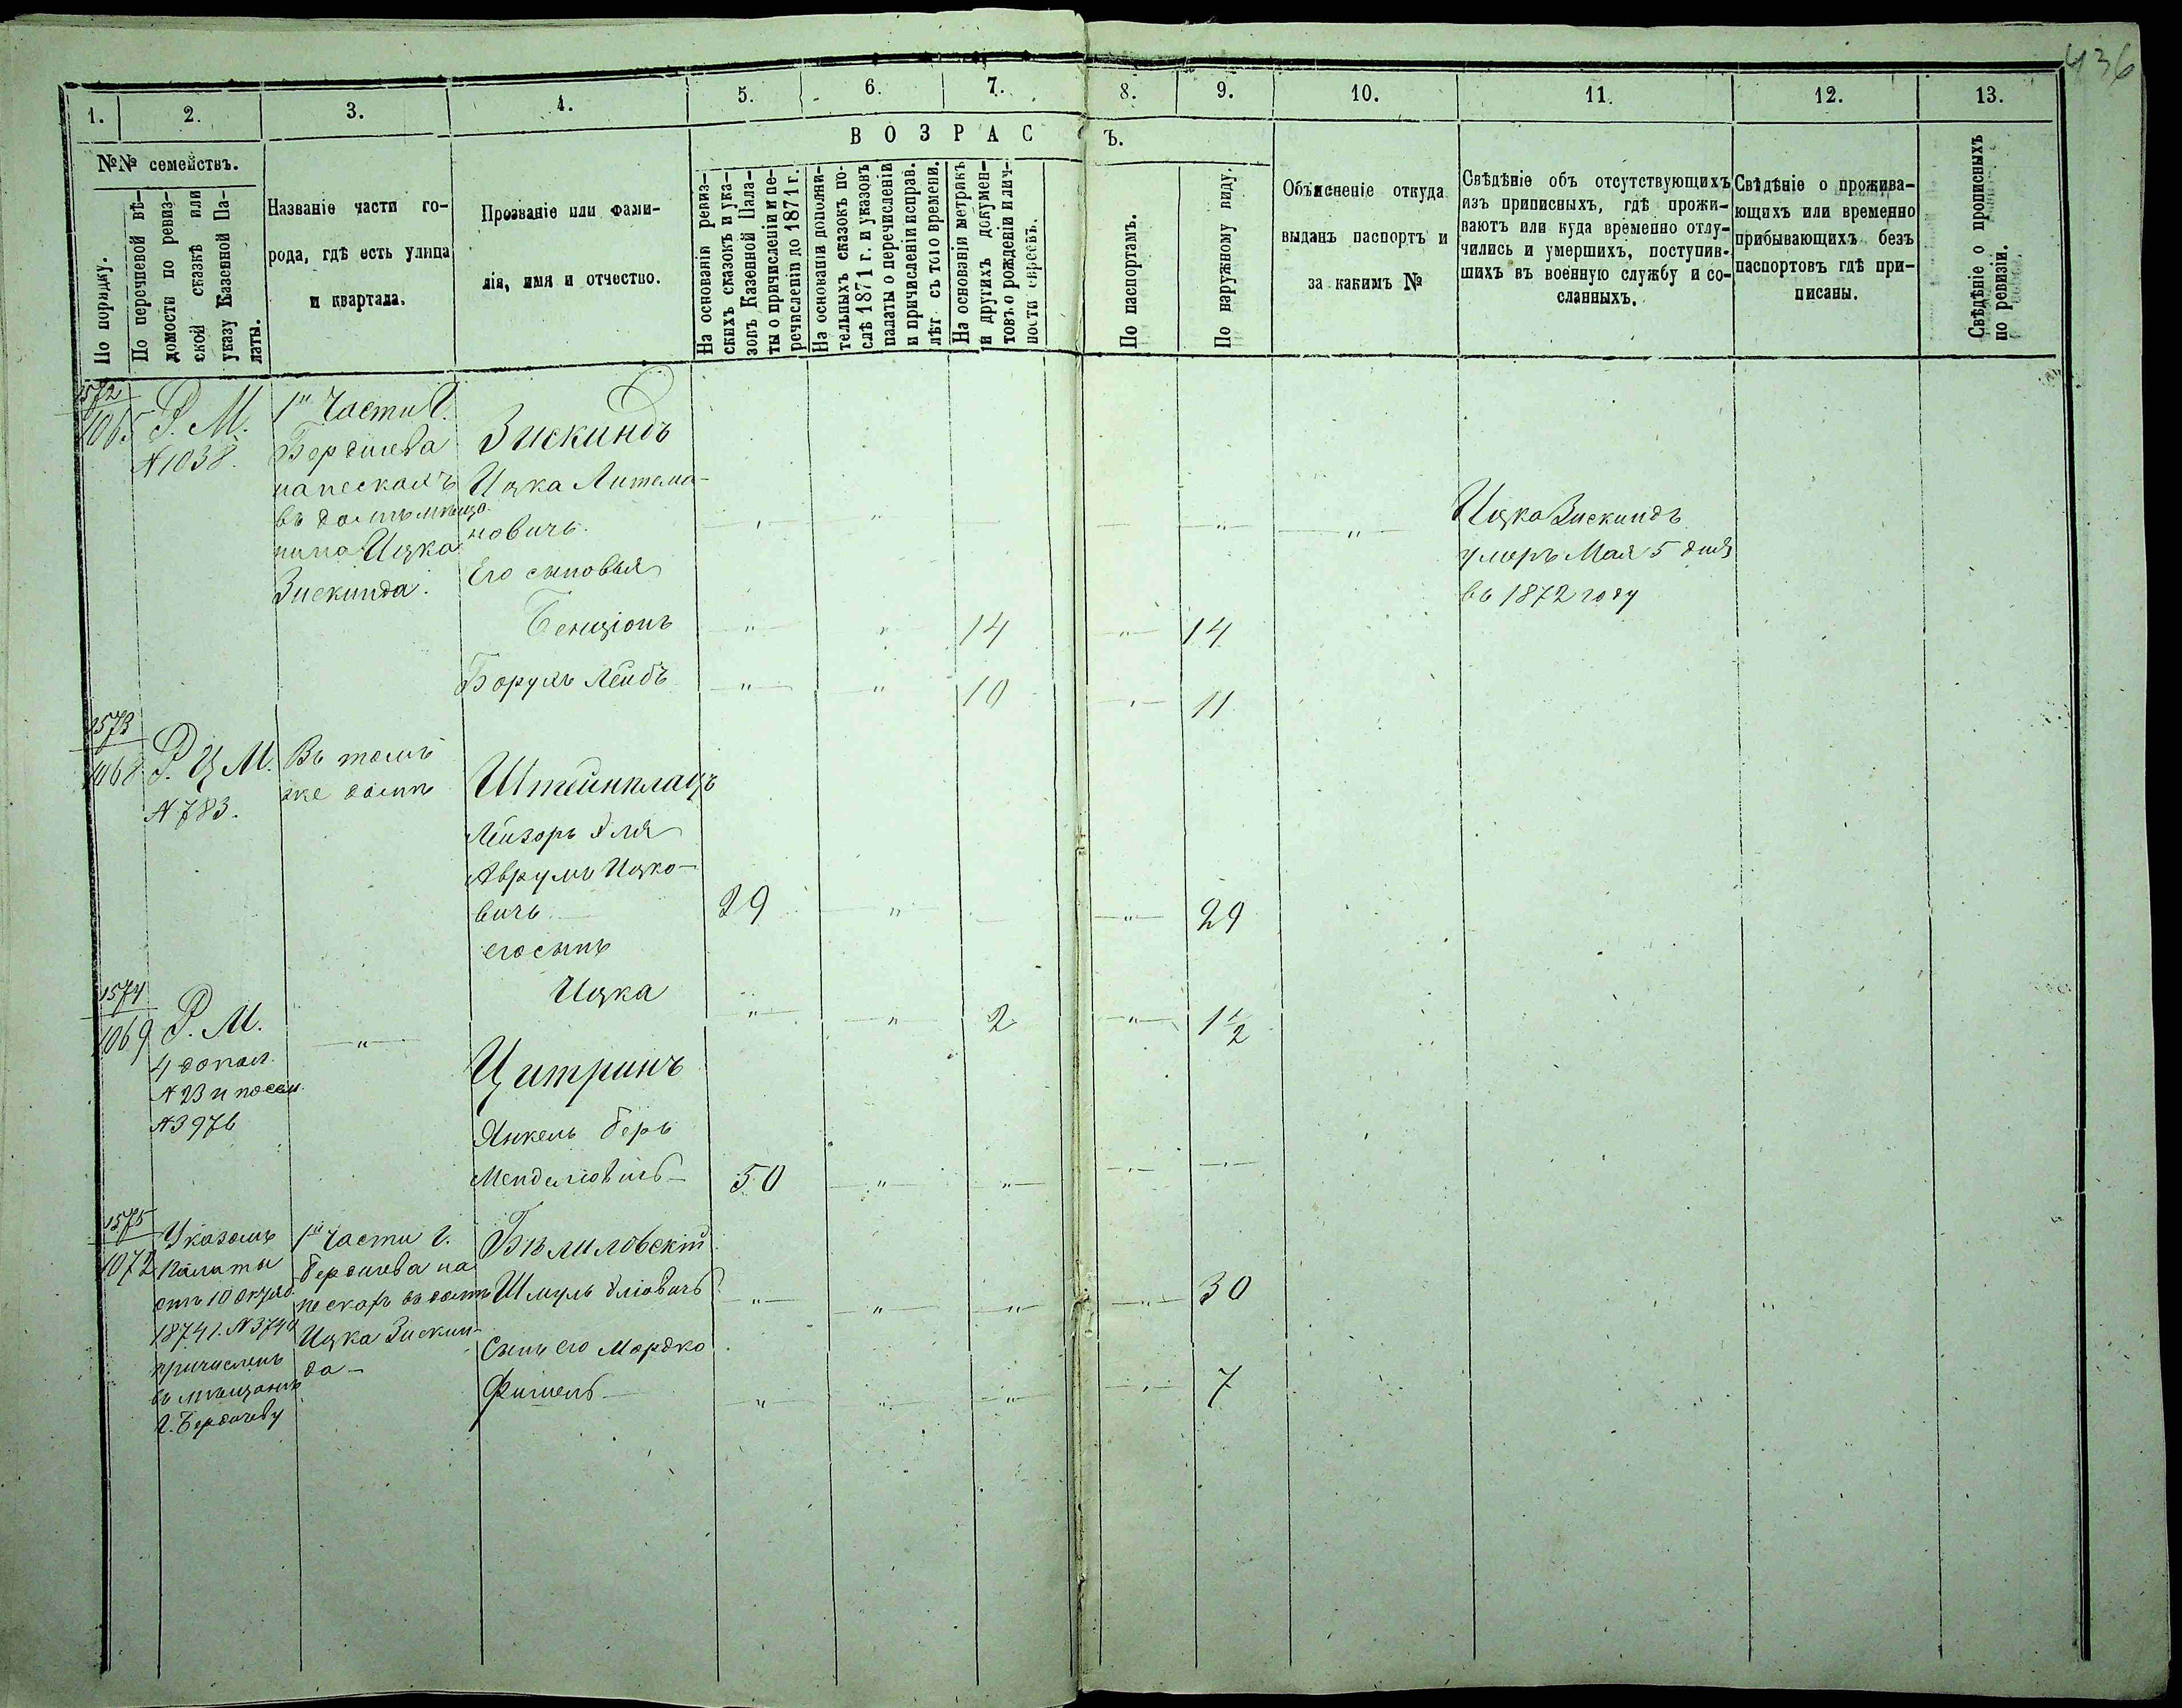 436
1. 2. 3. 4. 5. 6. 7. 8. 9. 10. 11. 12. 13.
ВОЗРАСЪ.
№№ семействъ.
По порядку.
По перечневой вѣ-
домости по ревиз-
ской сказкѣ или
указу Казенной Па-
латы.
Названіе части го-
рода, гдѣ есть улица
и квартала.
Прозваніе или фами-
лія, имя и отчество.
На основаніи ревиз-
скихъ сказокъ и ука-
зовъ Казенной Пала-
ты о причисленіи и пе-
речисленіи до 1871 г.
На основаніи дополни-
тельныхъ сказокъ по-
слѣ 1871 г. и указовъ
палаты о перечисленіи
и причисленіи исправ.
лѣт съ того времени.
На основаніи метрикъ
и другихъ докумен-
товъ о рожденіи и лич-
ности евреевъ.
По паспортамъ.
По наружному виду.
Объясненіе откуда
выданъ паспортъ и
за какимъ №
Свѣдѣніе объ отсутствующихъ
изъ приписныхъ, гдѣ прожи-
ваютъ или куда временно отлу-
чились и умершихъ, поступив-
шихъ въ военную службу и со-
сланныхъ.
Свѣдѣніе о прожива-
ющихъ или временно
прибывающихъ безъ
паспортовъ гдѣ при-
писаны.
Свѣдѣніе о прописныхъ
по ревизіи.
1572
1065
Р. М.
№1038.
1й Части Г.
Бердичева
на пескахъ
въ домѣ мѣща-
нина Ицка
Зискинда.
Зискиндъ
Ицка
новичъ.
Его сыновья
Бенціонъ " " 14 " 14
Борухъ Лейбъ " " 10 " 11
Ицка Зискиндъ
умеръ Мая 5 дня
въ 1872 году
1573
1068
Р. Ц М.
№ 783.
Въ томъ
же домѣ
Штейнплацъ
Лейзоръ Эля
Аврумъ Ицко-
вичъ 29 " " 29
его сынъ
Ицка " " 2 " 1½
1574
1069
Р. М.
4 допол.
№ 23 и посем.
№ 3976
"
Цитринъ
Янкель Беръ
Менделіовичъ 50 " " " "
1575
1072
Указомъ
Палаты
отъ 10
1874 г. № 3740
причисленъ
въ мѣщанъ
г. Бердичеву
1й Части Г.
Бердичева на
пескахъ въ домѣ
Ицка Зискин-
да
Бѣлиловскій
Шмуль Эліовичъ " " " " 30 "
Сынъ его Мордко
Фишель " " " " 7